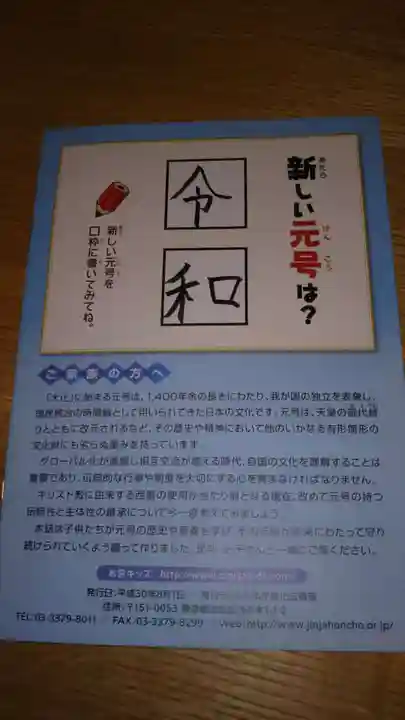 新しい元号は？
令
和
新しい元号を
口枠に書いてみてね。
ご家族の方へ
「大化」に始まる元号は、1,400年余の長きにわたり、我が国の独立を表象し、
国民統合の時間軸として用いられてきた日本の文化です。元号は、天皇の御代替
りとともに改元されるなど、その歴史や精神において他のいかなる有形無形の
文化財にも劣らぬ重みを持っています。
グローバル化が進展し相互交流が増える時代、自国の文化を理解することは
重要であり、伝統的な行事や制度を大切にする心を育まなければなりません。
キリスト教に由来する西暦の使用が当たり前となる現在、改めて元号の持つ
伝統性と主体性の継承について今一度考えてみましょう。
本誌は子供たちが元号の歴史や意義を学び、その伝統が未来にわたって守り
続けられていくよう願って作りました。是非、お子さんと一緒にご覧ください。
お宮キッズ http://www.
発行日:平成30年8月1日
住所:〒151-0053 東京都渋谷区代々木1-1-2
TEL:03-3379-8011 / FAX:03-3379-8299 / web:http://www.jinjahoncho.or.jp/